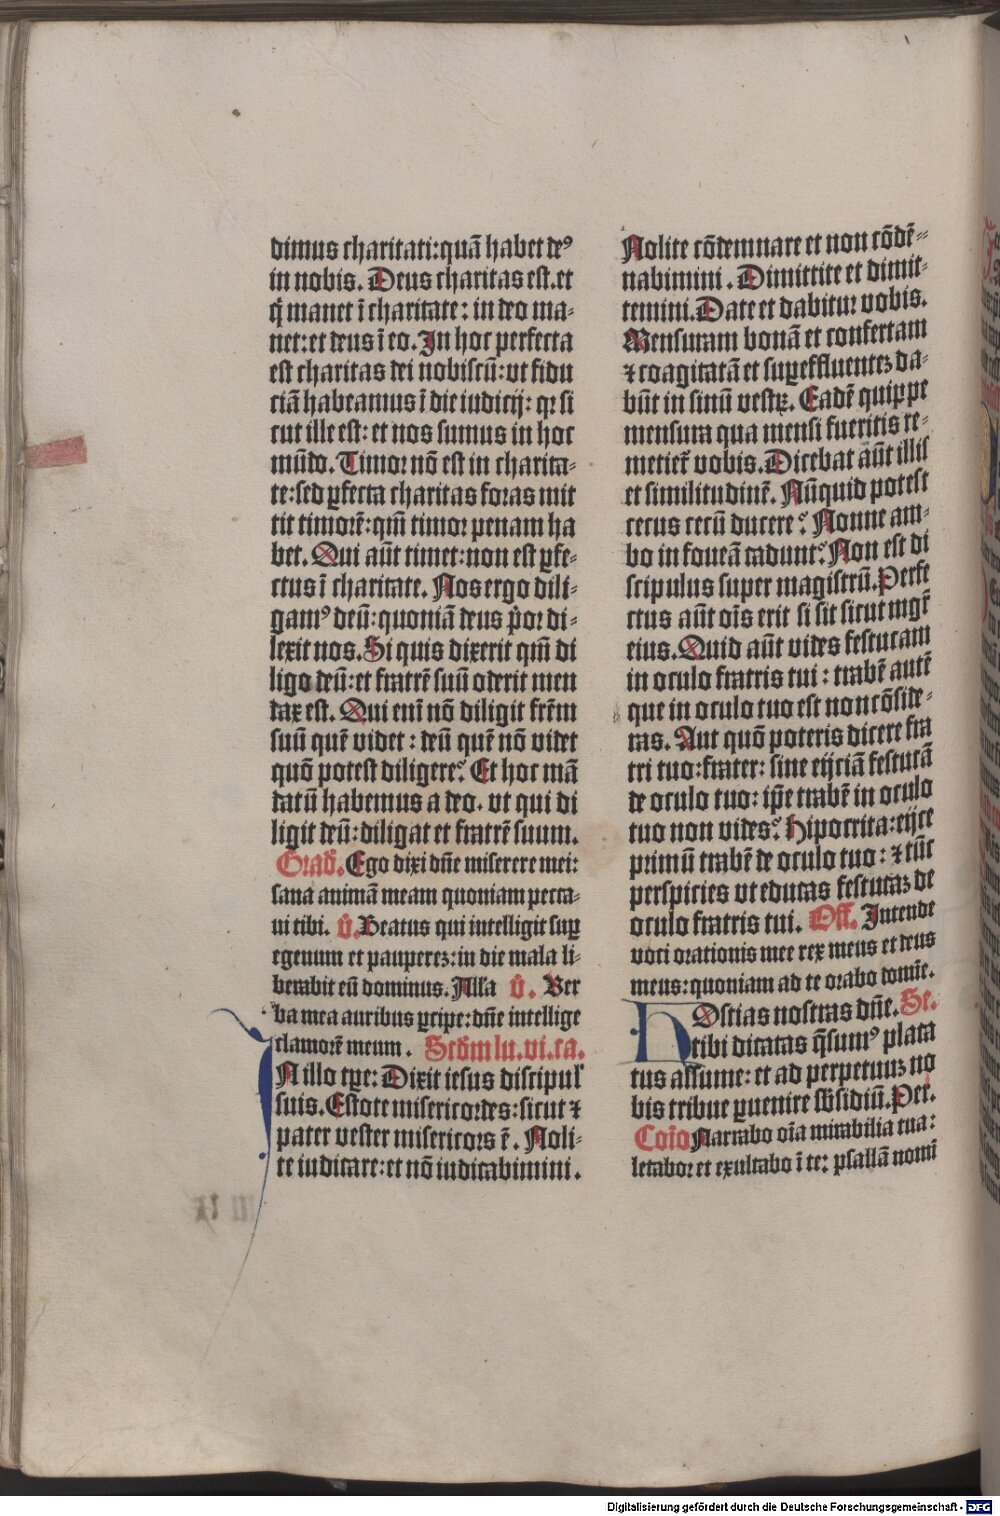 dimus charitati: quā habet deꝰ
in nobis. Deus charitas est. et
q̇ manet ī charitate: in deo ma-
net: et deus ī eo. In hoc perfecta
est charitas dei nobiscū: vt fidu
ciā habeamus ī die iudicij: qꝛ si
cut ille est: et nos sumus in hoc
mūdo. Timor nō est in charita-
te: sed ꝑfecta charitas foras mit
tit timorē: qm̄ timor penam ha
bet. Qui aūt timet: non est ꝑfe-
ctus ī charitate. Nos ergo dili-
gamꝰ deū: quoniā deus p̓or di-
lexit nos. Si quis dixerit qm̄ di
ligo deū: et fratrē suū oderit men
dax est. Qui enī nō diligit frēm
suū quē videt: deū quē nō videt
quō potest diligere? Et hoc mā
datū habemus a deo. vt qui di
ligit deū: diligat et fratrē suum.
Grad̓. Ego dixi dn̄e miserere mei:
sana animā meam quoniam pecca-
ui tibi. v̓. Beatus qui intelligit suꝑ
egenum et pauperez: in die mala li-
berabit eū dominus. Alla v̓. Ver
ba mea auribus ꝑcipe: dn̄e intellige
clamorē meum. Scd̓m lu. vi. ca.
IN illo tꝑe: Dixit iesus discipul̓
suis. Estote misericordes: sicut ⁊
pater vester misericors ē. Noli-
te iudicare: et nō iudicabimini.
Nolite cōdemnare et non cōdē-
nabimini. Dimittite et dimit-
temini. Date et dabitur vobis.
Mensuram bonā et confertam
⁊ coagitatā et suꝑeffluentez da-
būt in sinū vestꝝ. Eadē quippe
mensura qua mensi fueritis re-
metiet̓ vobis. Dicebat aūt illis
et similitudinē. Nūquid potest
cecus cecū ducere? Nonne am-
bo in foueā cadunt? Non est di
scipulus super magistrū. Perfe
ctus aūt oīs erit si sit sicut mgr̄
eius. Quid aūt vides festucam
in oculo fratris tui: trabē autē
que in oculo tuo est non cōside-
ras. Aut quō poteris dicere fra
tri tuo: frater: sine eijciā festucā
de oculo tuo: ip̄e trabē in oculo
tuo non vides? Hipocrita: eijce
primū trabē de oculo tuo: ⁊ tūc
perspicies vt educas festucaz de
oculo fratris tui. Off. Intende
voci orationis mee rex meus et deus
meus: quoniam ad te orabo domīe.
HOstias nostras dn̄e. Se.
tibi dicatas q̄sumꝰ placa
tus assume: et ad perpetuuz no
bis tribue ꝑuenire sb̓sidiū. Per.
Cōio Narrabo oīa mirabilia tua:
letabor et exultabo ī te: psallā nomī
Digitalisierung gefördert durch die Deutsche Forschungsgemeinschaft - DFG